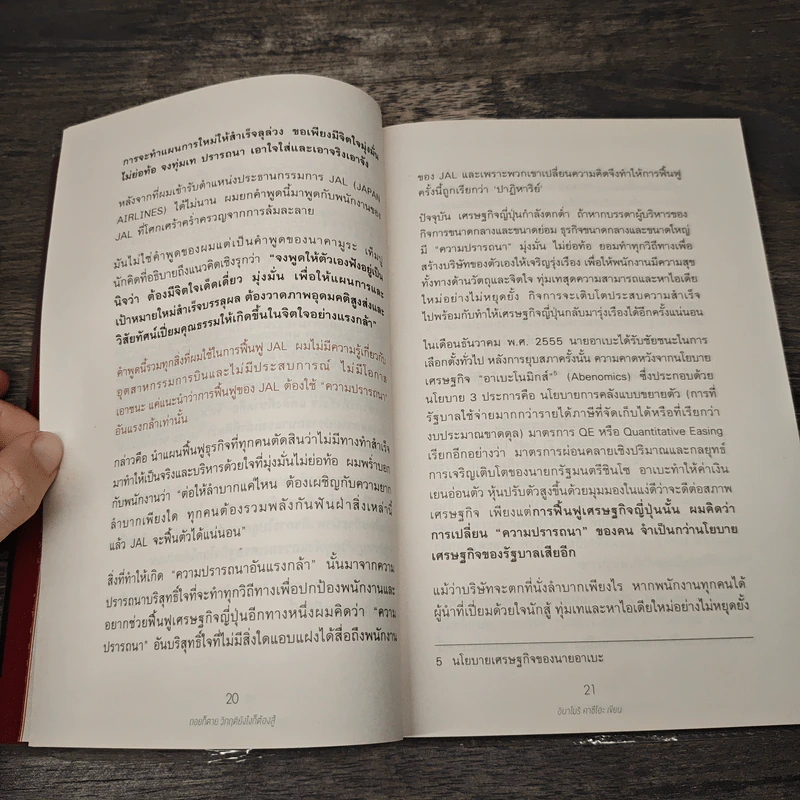 การจะทำแผนการใหม่ให้สำเร็จลุล่วง ขอเพียงมีจิตใจมุ่งมั่น
ไม่ย่อท้อ จงทุ่มเท ปรารถนา เอาใจใส่และเอาจริงเอาจัง
หลังจากที่ผมเข้ารับตำแหน่งประธานกรรมการ JAL (JAPAN
AIRLINES) ได้ไม่นาน ผมยกคำพูดนี้มาพูดกับพนักงานของ
JAL ที่โศกเศร้าคร่ำครวญจากการล้มละลาย
มันไม่ใช่คำพูดของผมแต่เป็นคำพูดของนาคามูระ เท็มปู
นักคิดที่อธิบายถึงแนวคิดเชิงรุกว่า “จงพูดให้ตัวเองฟังอยู่เป็น
นิจว่า ต้องมีจิตใจเด็ดเดี่ยว มุ่งมั่น เพื่อให้แผนการและ
เป้าหมายใหม่สำเร็จบรรลุผล ต้องวาดภาพอุดมคติสูงส่งและ
วิสัยทัศน์เปี่ยมคุณธรรมให้เกิดขึ้นในจิตใจอย่างแรงกล้า”
คำพูดนี้รวมทุกสิ่งที่ผมใช้ในการฟื้นฟู JAL ผมไม่มีความรู้เกี่ยวกับ
อุตสาหกรรมการบินและไม่มีประสบการณ์ ไม่มีโอกาส
เอาชนะ แค่แนะนำว่าการฟื้นฟูของ JAL ต้องใช้ “ความปรารถนา”
อันแรงกล้าเท่านั้น
กล่าวคือ นำแผนฟื้นฟูธุรกิจที่ทุกคนตัดสินว่าไม่มีทางทำสำเร็จ
มาทำให้เป็นจริงและบริหารด้วยใจที่มุ่งมั่นไม่ย่อท้อ ผมพร่ำบอก
กับพนักงานว่า “ต่อให้ลำบากแค่ไหน ต้องเผชิญกับความยาก
ลำบากเพียงใด ทุกคนต้องรวมพลังกันฟันฝ่าสิ่งเหล่านี้
แล้ว JAL จะฟื้นตัวได้แน่นอน”
สิ่งที่ทำให้เกิด “ความปรารถนาอันแรงกล้า” นั้นมาจากความ
ปรารถนาบริสุทธิ์ใจที่จะทำทุกวิถีทางเพื่อปกป้องพนักงานและ
อยากช่วยฟื้นฟูเศรษฐกิจญี่ปุ่นอีกทางหนึ่งผมคิดว่า “ความ
ปรารถนา” อันบริสุทธิ์ใจที่ไม่มีสิ่งใดแอบแฝงได้สื่อถึงพนักงาน
20
ถอยก็ตาย วิกฤติยังไงก็ต้องสู้
ของ JAL และเพราะพวกเขาเปลี่ยนความคิดจึงทำให้การฟื้นฟู
ครั้งนี้ถูกเรียกว่า ‘ปาฏิหาริย์’
ปัจจุบัน เศรษฐกิจญี่ปุ่นกำลังตกต่ำ ถ้าหากบรรดาผู้บริหารของ
กิจการขนาดกลางและขนาดย่อม ธุรกิจขนาดกลางและขนาดใหญ่
มี “ความปรารถนา” มุ่งมั่น ไม่ย่อท้อ ยอมทำทุกวิถีทางเพื่อ
สร้างบริษัทของตัวเองให้เจริญรุ่งเรือง เพื่อให้พนักงานมีความสุข
ทั้งทางด้านวัตถุและจิตใจ ทุ่มเทสุดความสามารถและหาไอเดีย
ใหม่อย่างไม่หยุดยั้ง กิจการจะเติบโตประสบความสำเร็จ
ไปพร้อมกับทำให้เศรษฐกิจญี่ปุ่นกลับมารุ่งเรืองได้อีกครั้งแน่นอน
ในเดือนธันวาคม พ.ศ. 2555 นายอาเบะได้รับชัยชนะในการ
เลือกตั้งทั่วไป หลังการยุบสภาครั้งนั้น ความคาดหวังจากนโยบาย
เศรษฐกิจ “อาเบะโนมิกส์”⁵ (Abenomics) ซึ่งประกอบด้วย
นโยบาย 3 ประการคือ นโยบายการคลังแบบขยายตัว (การที่
รัฐบาลใช้จ่ายมากกว่ารายได้ภาษีที่จัดเก็บได้หรือที่เรียกว่า
งบประมาณขาดดุล) มาตรการ QE หรือ Quantitative Easing
เรียกอีกอย่างว่า มาตรการผ่อนคลายเชิงปริมาณและกลยุทธ์
การเจริญเติบโตของนายกรัฐมนตรีชินโซ อาเบะทำให้ค่าเงิน
เยนอ่อนตัว หุ้นปรับตัวสูงขึ้นด้วยมุมมองในแง่ดีว่าจะดีต่อสภาพ
เศรษฐกิจ เพียงแต่การฟื้นฟูเศรษฐกิจญี่ปุ่นนั้น ผมคิดว่า
การเปลี่ยน “ความปรารถนา” ของคน จำเป็นกว่านโยบาย
เศรษฐกิจของรัฐบาลเสียอีก
แม้ว่าบริษัทจะตกที่นั่งลำบากเพียงไร หากพนักงานทุกคนได้
ผู้นำที่เปี่ยมด้วยใจนักสู้ ทุ่มเทและหาไอเดียใหม่อย่างไม่หยุดยั้ง
5 นโยบายเศรษฐกิจของนายอาเบะ
21
อินาโมริ คาสึโอะ เขียน